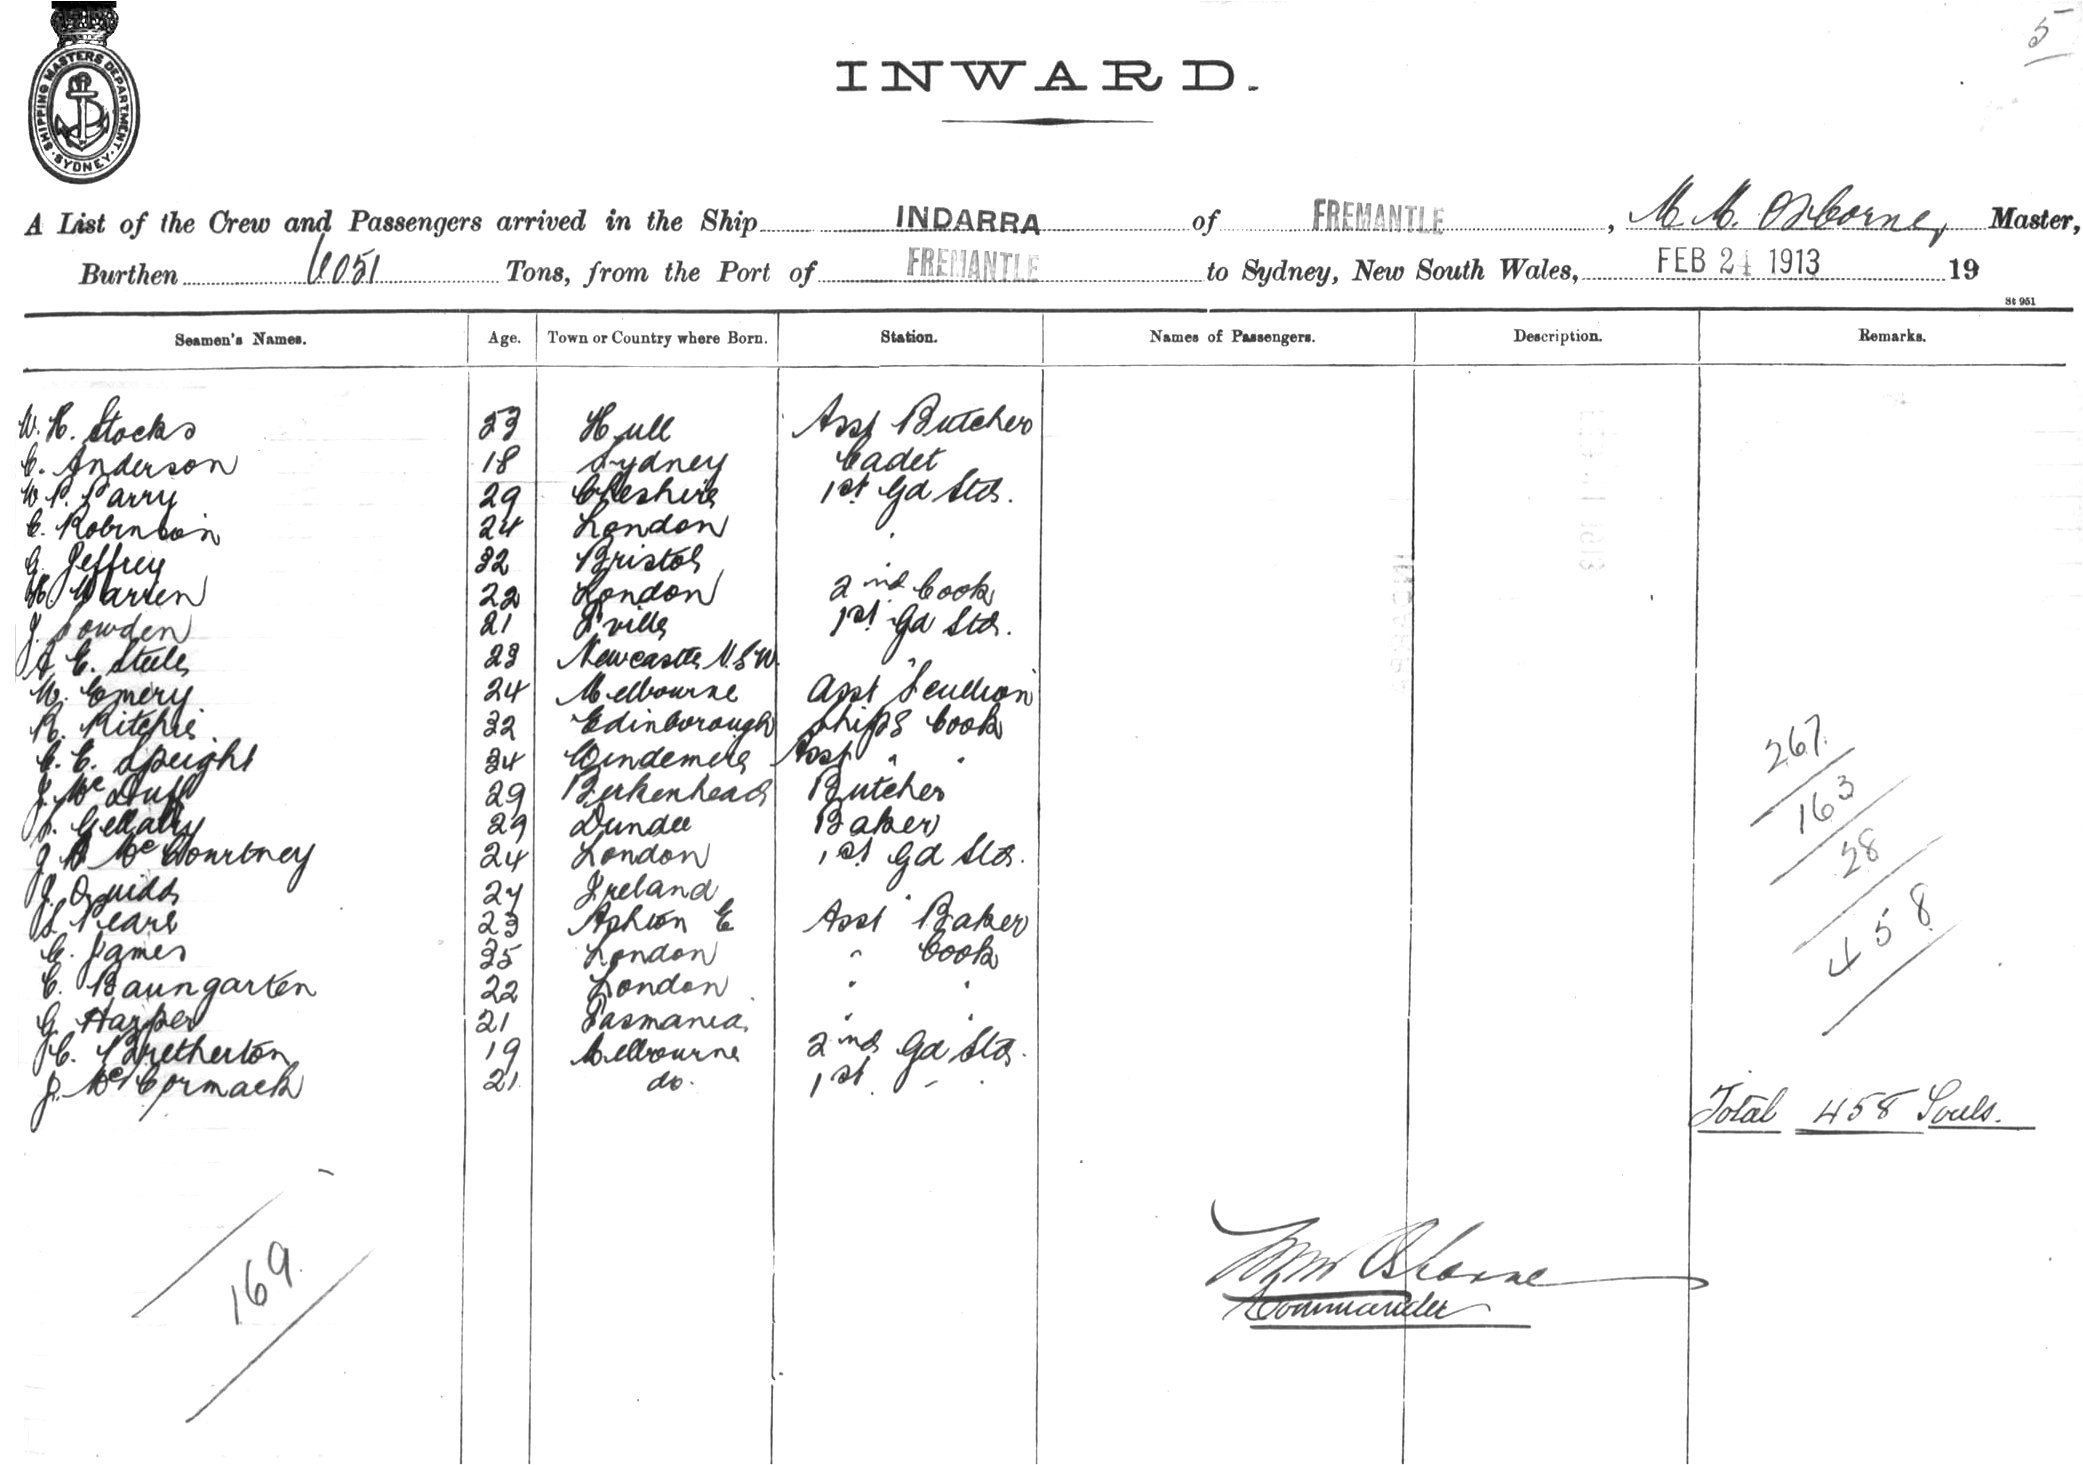 5
SHIPPING MASTERS DEPARTMENT. SYDNEY
INWARD.
A List of the Crew and Passengers arrived in the Ship INDARRA of FREMANTLE, M. M. Osborne, Master,
Burthen 6051 Tons, from the Port of FREMANTLE to Sydney, New South Wales, FEB 24 1913 19
St 951
Seamen's Names. Age. Town or Country where Born. Station. Names of Passengers. Description. Remarks.
W. H. Stocks 33 Hull Asst Butcher
C. Anderson 18 Sydney Cadet
W P. Parry 29 Cheshire 1st Gd Std.
C. Robinson 24 London "
G. Jeffrey 32 Bristol
H. Warren 22 London 2nd Cook
J. Lowden 21 L'ville 1st Gd Std.
A E. Steele 23 Newcastle N.S.W. "
M. Emery 24 Melbourne Asst Scullion
R. Ritchie 32 Edinborough Ships Cook
C. E. Speight 34 Windemere Asst " "
J. McDuff 29 Birkenhead Butcher
29 Dundee Baker
J. McCourtney 24 London 1st Gd Std.
J. Quidd 24 Ireland "
S. Peare 23 Ashton E Asst Baker
G. James 35 London " Cook
C. Baungarten 22 London " "
G. Harper 21 Tasmania " "
C. Bretherton 19 Melbourne 2nd Gd Std.
J. McCormack 21 do. 1st " "
267
163
28
458
Total 458 Souls.
169
Osborne
Commander